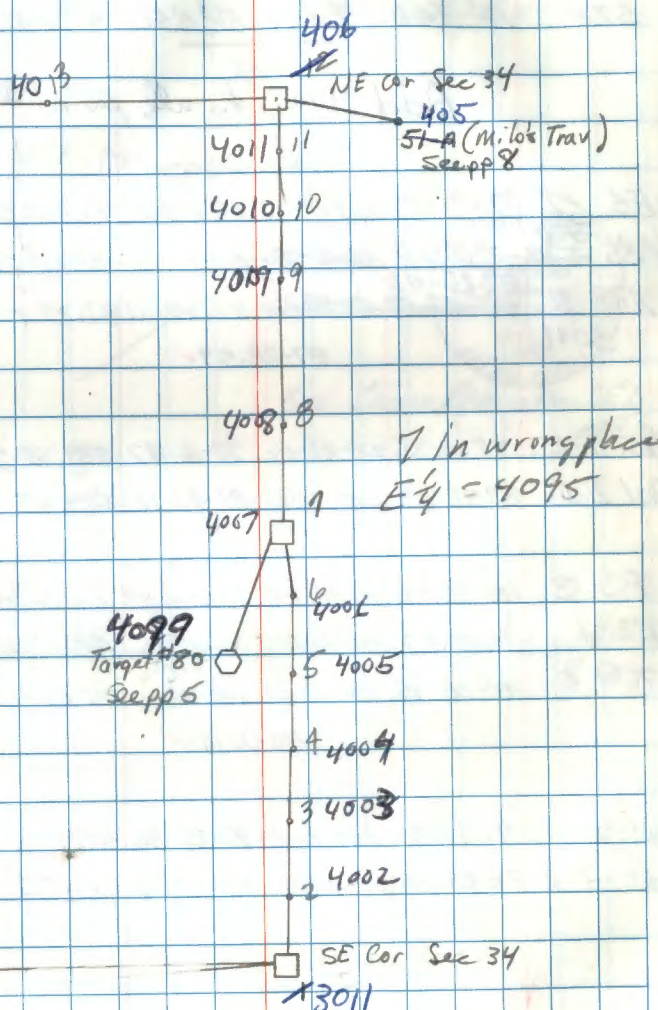 406
12
NE Cor Sec 34
4013
405
51-A (Milo's Trav)
See pp 8
4011 11
4010 10
4009 9
4008 8
7 in wrong place
E 1/4 = 4095
4007 7
6 4006
4099
Target #80
See pp 5
5 4005
4 4004
3 4003
2 4002
SE Cor Sec 34
1 3011